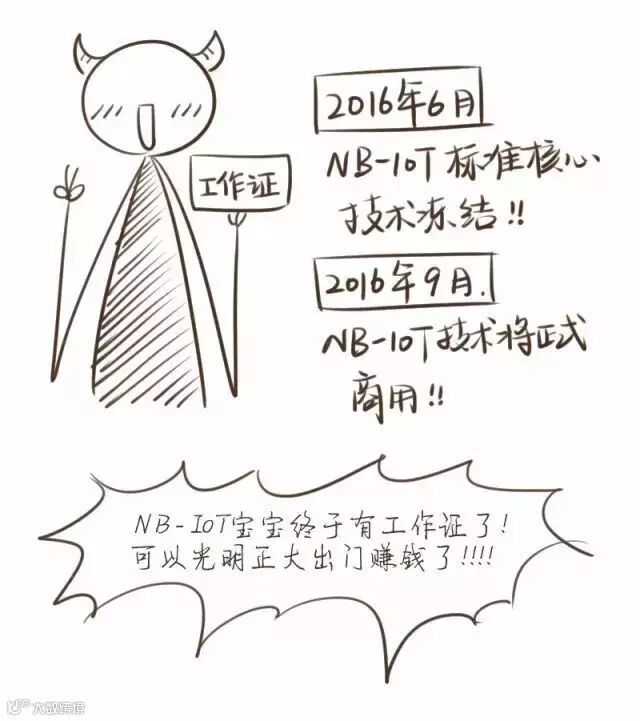 工作证
2016年6月
NB-IoT标准核心
技术冻结!!
2016年9月.
NB-IoT技术将正式
商用!!
NB-IoT宝宝终于有工作证了!
可以光明正大出门赚钱了!!!!
大数跨境